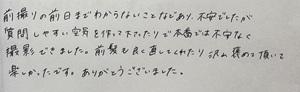 前撮りの前日までわからないことなどあり、不安でしたが
質問しやすい空気を作って下さったりで本番では不安なく
撮影できました。前髪も良く直してくれたり沢山褒めて頂いて
楽しかったです。ありがとうございました。